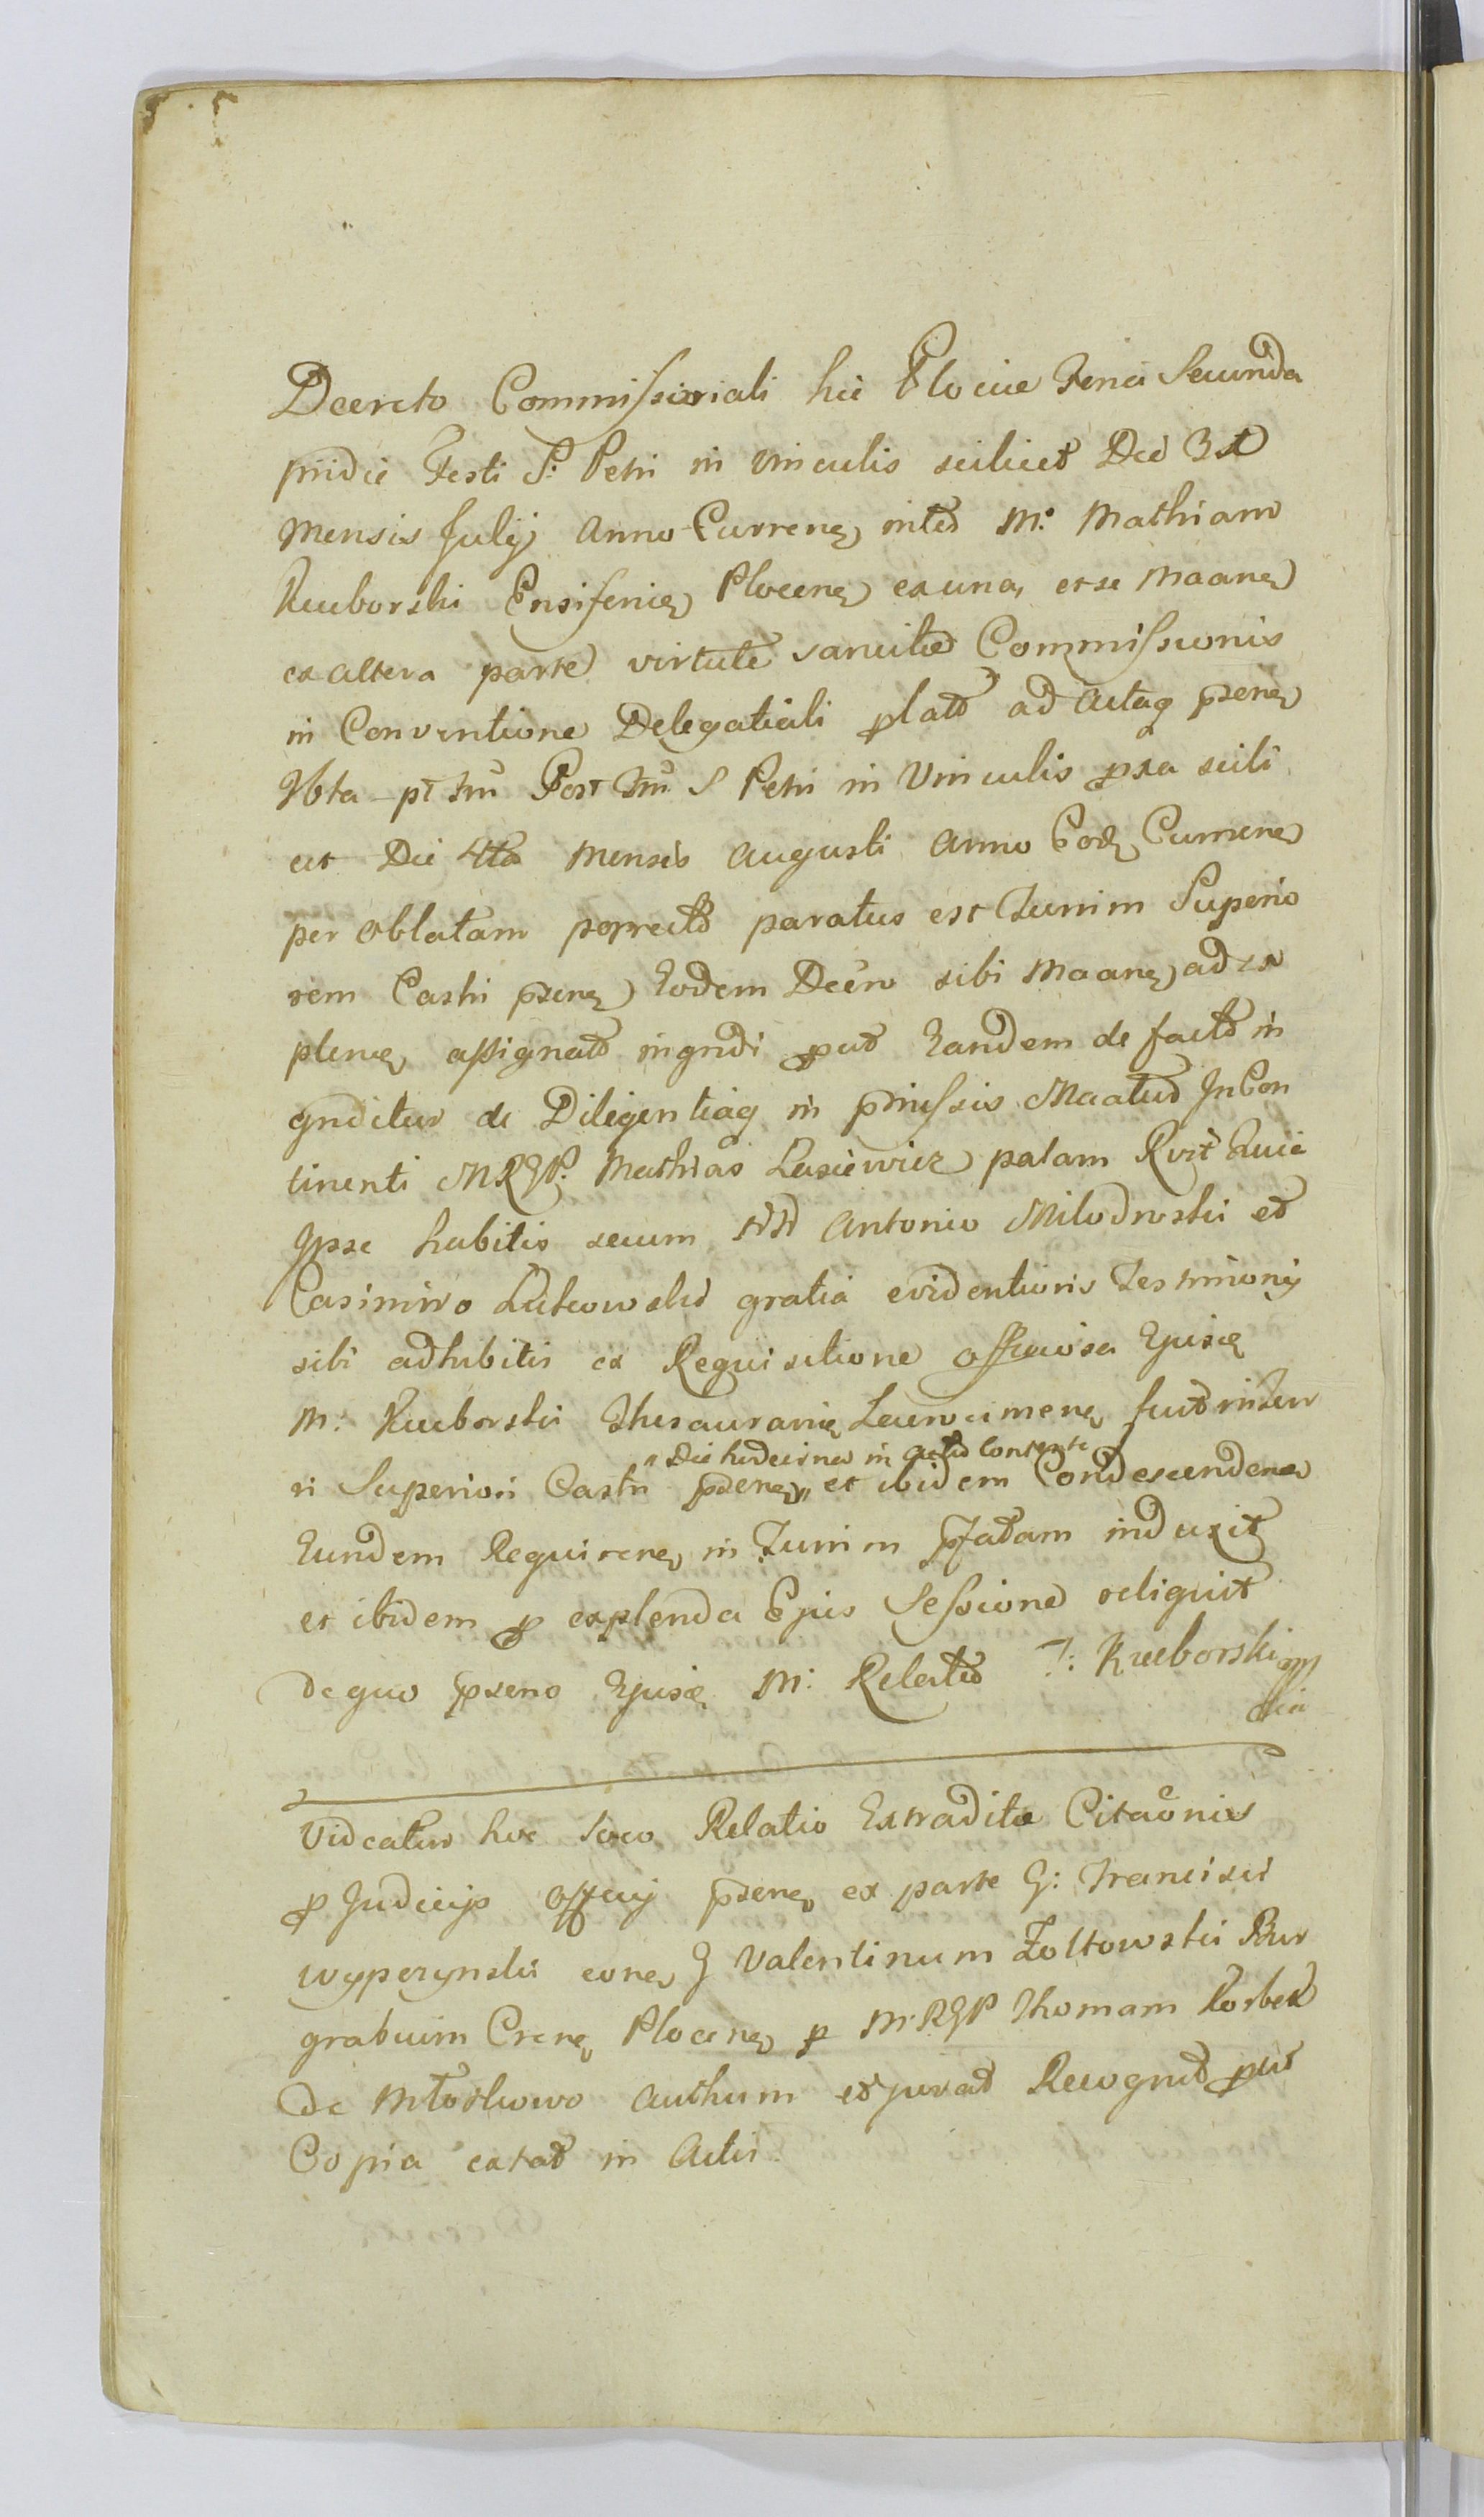 Decreto Commissoriali hic Plociae Feria Secunda
pridie Festi S: Petri in vinculis scilicet Die 31
Mensis Julij Anno Curren inter M: Mathiam
Kuborski Ensiferum Plocen ex una, et se Maanen
ex altera parte virtute sancitae Commissionis
in Conventione Delegatiali plato ad Actaq psen
Fest S Petri in Vinculis pxa scili
cet Die 4ta Mensis Augusti Anno Eod Curren
per Oblatam porrecto paratus est Turrim Superio
rem Castri psen Eodem Decro sibi Maanen ad ex
plen assignato ingredi put Eandem de facto in
greditur de Diligentiaq in pmissis Maatus In Con
tinenti MRGP. Mathias Lasiewicz palam Rvit Quia
Ipse habitis secum Antonio Milodroski et
Casimiro Lutkowski gratia evidentioris Testimonij
sibi adhibitis ex Requisitione officiosa Ejusde
M: Kuborski Thesaurarii fuit in Tur
ri Superiori Castri psen, et ibidem Condescenden
" Die hodierna in actu Contente
Eundem Requiren in Turrim pfatam induxit
et ibidem p explenda Ejus Sessione reliquit
de quo pseno Ejusde M: Relatio T: Kuborski mpp
Videatur hoc loco Relatio Extraditae Citaonis
p Judicijs Officij psen ex parte G: Francisci
Wyperzynski con G Valentinum Zoltowski Bur
grabium Cren Plocen p M. RGP Thomam Korbek
De Mlotkowo Authum et jurat Recognit put
Copia extat in Actis